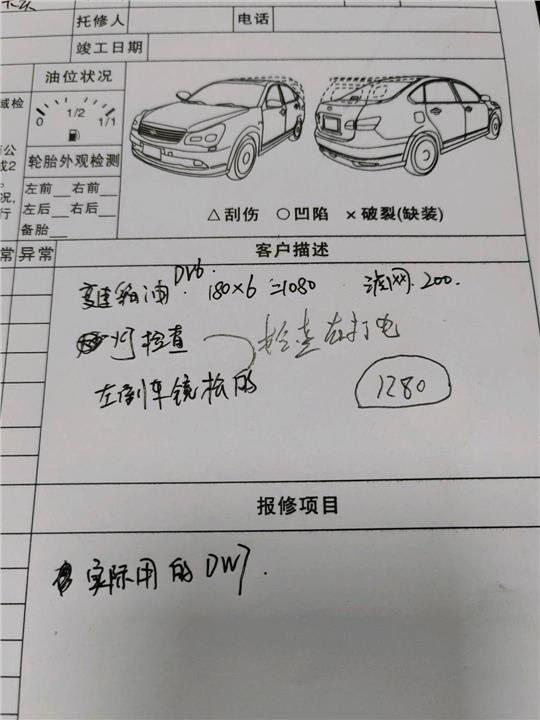 托修人 电话
竣工日期
油位状况
0 1/2 1/1
轮胎外观检测
左前__右前__
左后__右后__
备胎__
常 异常
△刮伤 ○凹陷 ×破裂(缺装)
客户描述
变速箱油 DW6. 180×6=1080 滤网.200.
灯检查 检查右打电
左倒车镜松的
1280
报修项目
实际用的DW7.